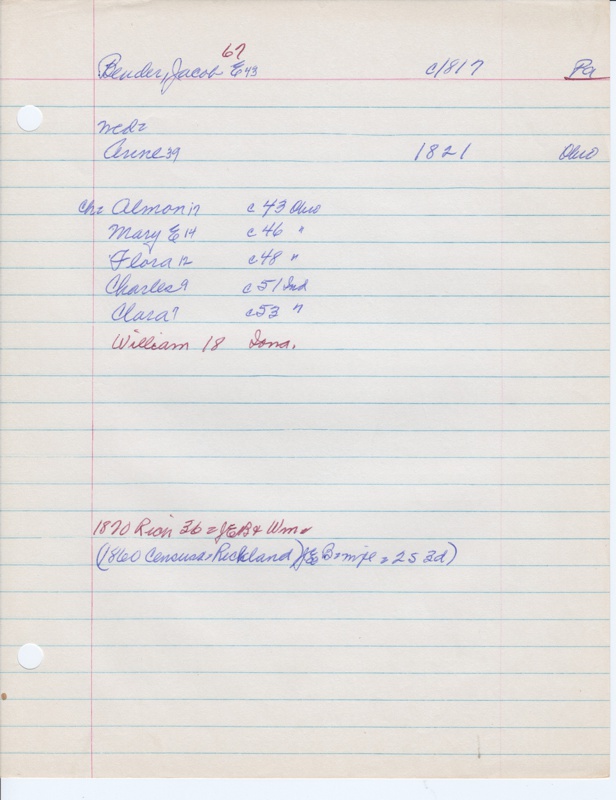 67
Bender, Jacob E 43 c1817 Pa
md=
Anne 39 1821 Ohio
ch= Almon 17 c 43 Ohio
Mary E 14 c 46 "
Flora 12 c 48 "
Charles 9 c 51 Ind
Clara 7 c 53 "
William 18 Iowa.
1870 Rich 36 = JEB & Wm
(1860 Census = Richland) JE B + wife = 2S 3d)